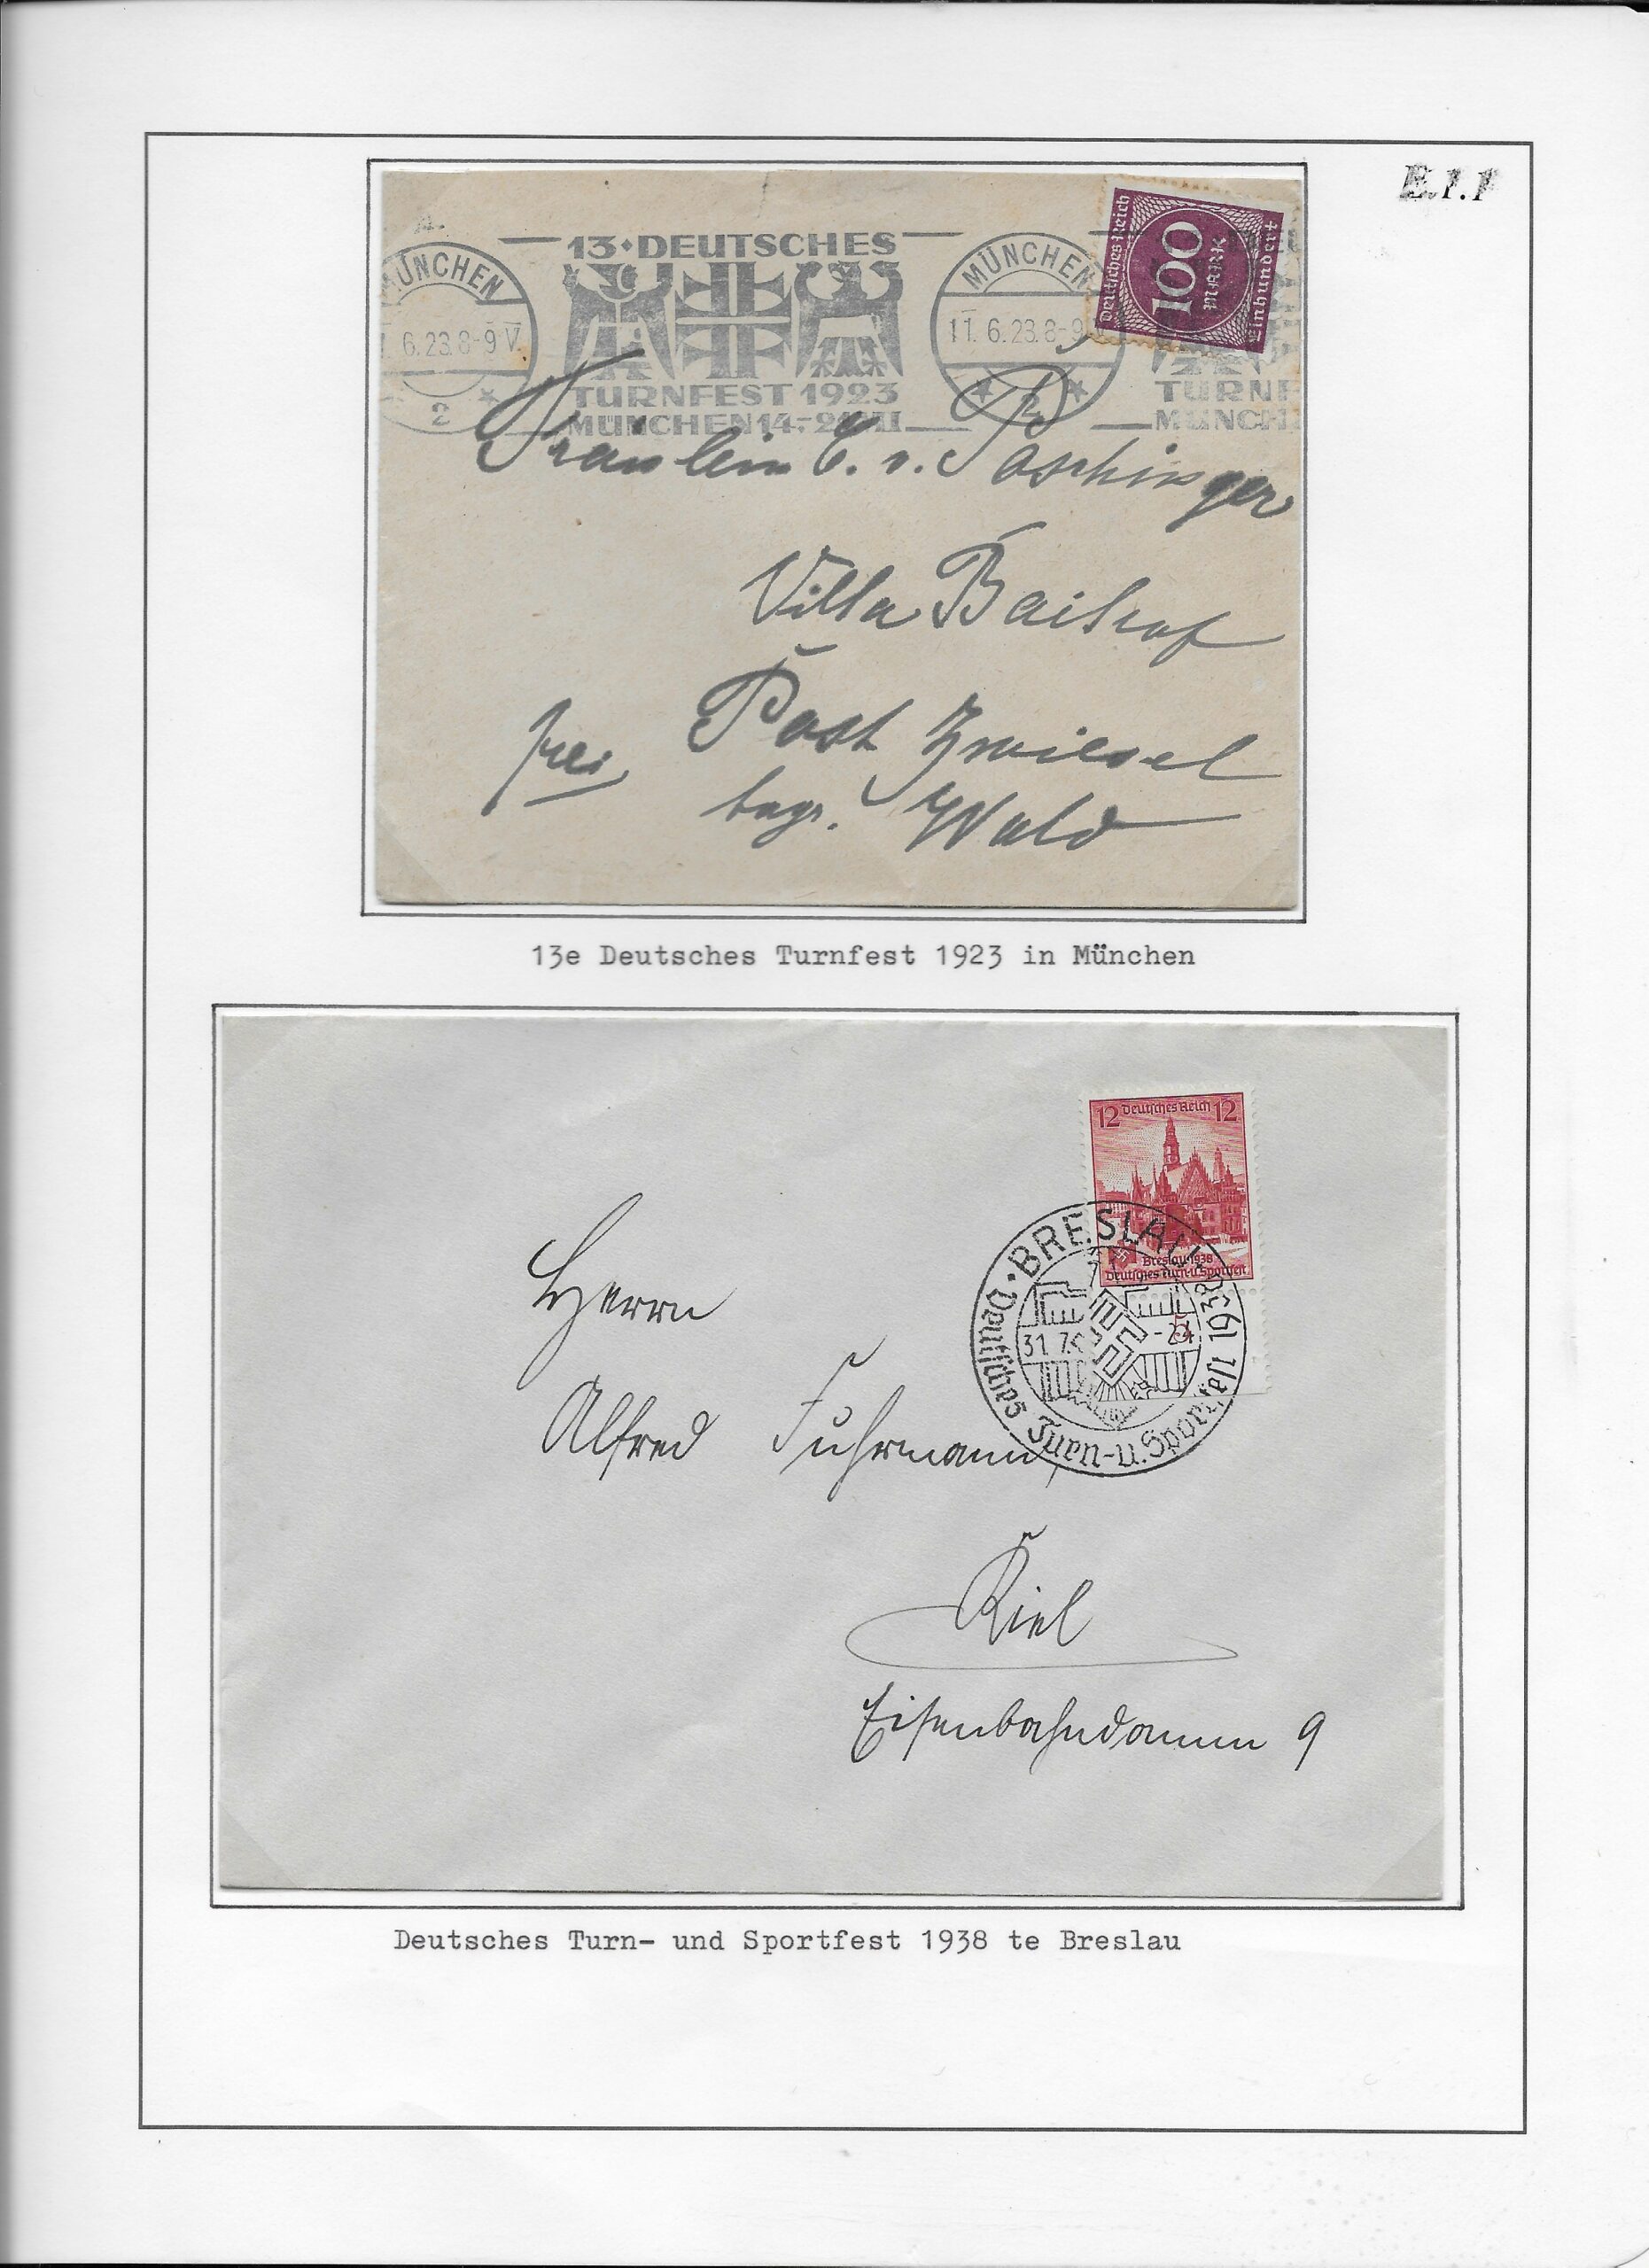 E.1.1
13 • DEUTSCHES
TURNFEST 1923
MÜNCHEN 14.-21.VII
MÜNCHEN
6.23.8-9 V.
2
MÜNCHEN
11. 6.23.8-9 V
2
TURNF
MÜNCH
Deutsches Reich
100
MARK
Einhundert
Fräulein C. v. Poschinger
Villa
Post Zwiesel
frei
bayr. Wald
13e Deutsches Turnfest 1923 in München
12 Deutsches Reich 12
Breslau 1938
Deutsches Turn-u. Sportfest
BRESLAU
31.7.
-24
5
Deutsches Turn-u. Sportfest 1938
Herrn
Alfred Fuhrmann,
Kiel
Eisenbahndamm 9
Deutsches Turn- und Sportfest 1938 te Breslau